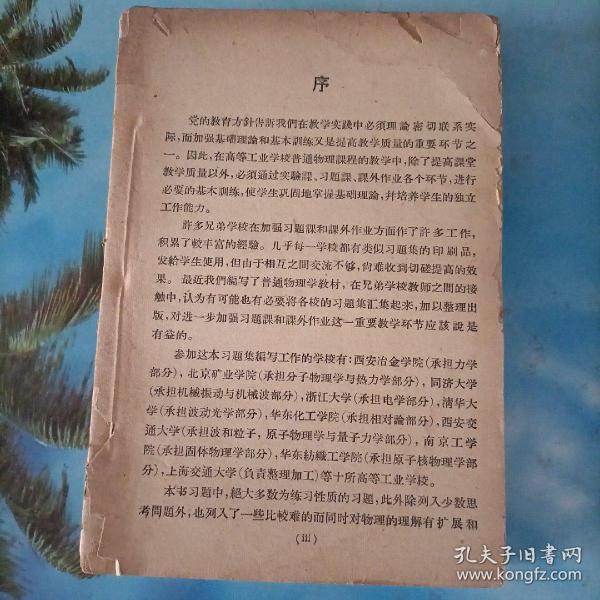 序
党的教育方針告訴我們在教学实践中必須理論密切联系实
际,而加强基础理論和基本訓练又是提高教学质量的重要环节之
一。因此,在高等工业学校普通物理課程的教学中,除了提高課堂
教学质量以外,必須通过实驗課、习题課、課外作业各个环节,进行
必要的基本訓练,使学生巩固地掌握基础理論,并培养学生的独立
工作能力。
許多兄弟学校在加强习题課和課外作业方面作了許多工作,
积累了較丰富的經驗。几乎每一学校都有类似习题集的印刷品,
发給学生使用,但由于相互之間交流不够,尙难收到切磋提高的效
果。最近我們編写了普通物理学教材,在兄弟学校教师之間的接
触中,认为有可能也有必要将各校的习题集汇集起来,加以整理出
版,对进一步加强习题課和課外作业这一重要教学环节应該說是
有益的。
参加这本习题集編写工作的学校有:西安冶金学院(承担力学
部分),北京矿业学院(承担分子物理学与热力学部分),同济大学
(承担机械振动与机械波部分),浙江大学(承担电学部分),清华大
学(承担波动光学部分),华东化工学院(承担相对論部分),西安交
通大学(承担波和粒子,原子物理学与量子力学部分),南京工学
院(承担固体物理学部分),华东紡織工学院(承担原子核物理学部
分),上海交通大学(負責整理加工)等十所高等工业学校。
本书习题中,絕大多数为练习性质的习题,此外除列入少数思
考問题外,也列入了一些比較难的而同时对物理的理解有扩展和
(iii)
孔夫子旧书网
www.kongfz.com